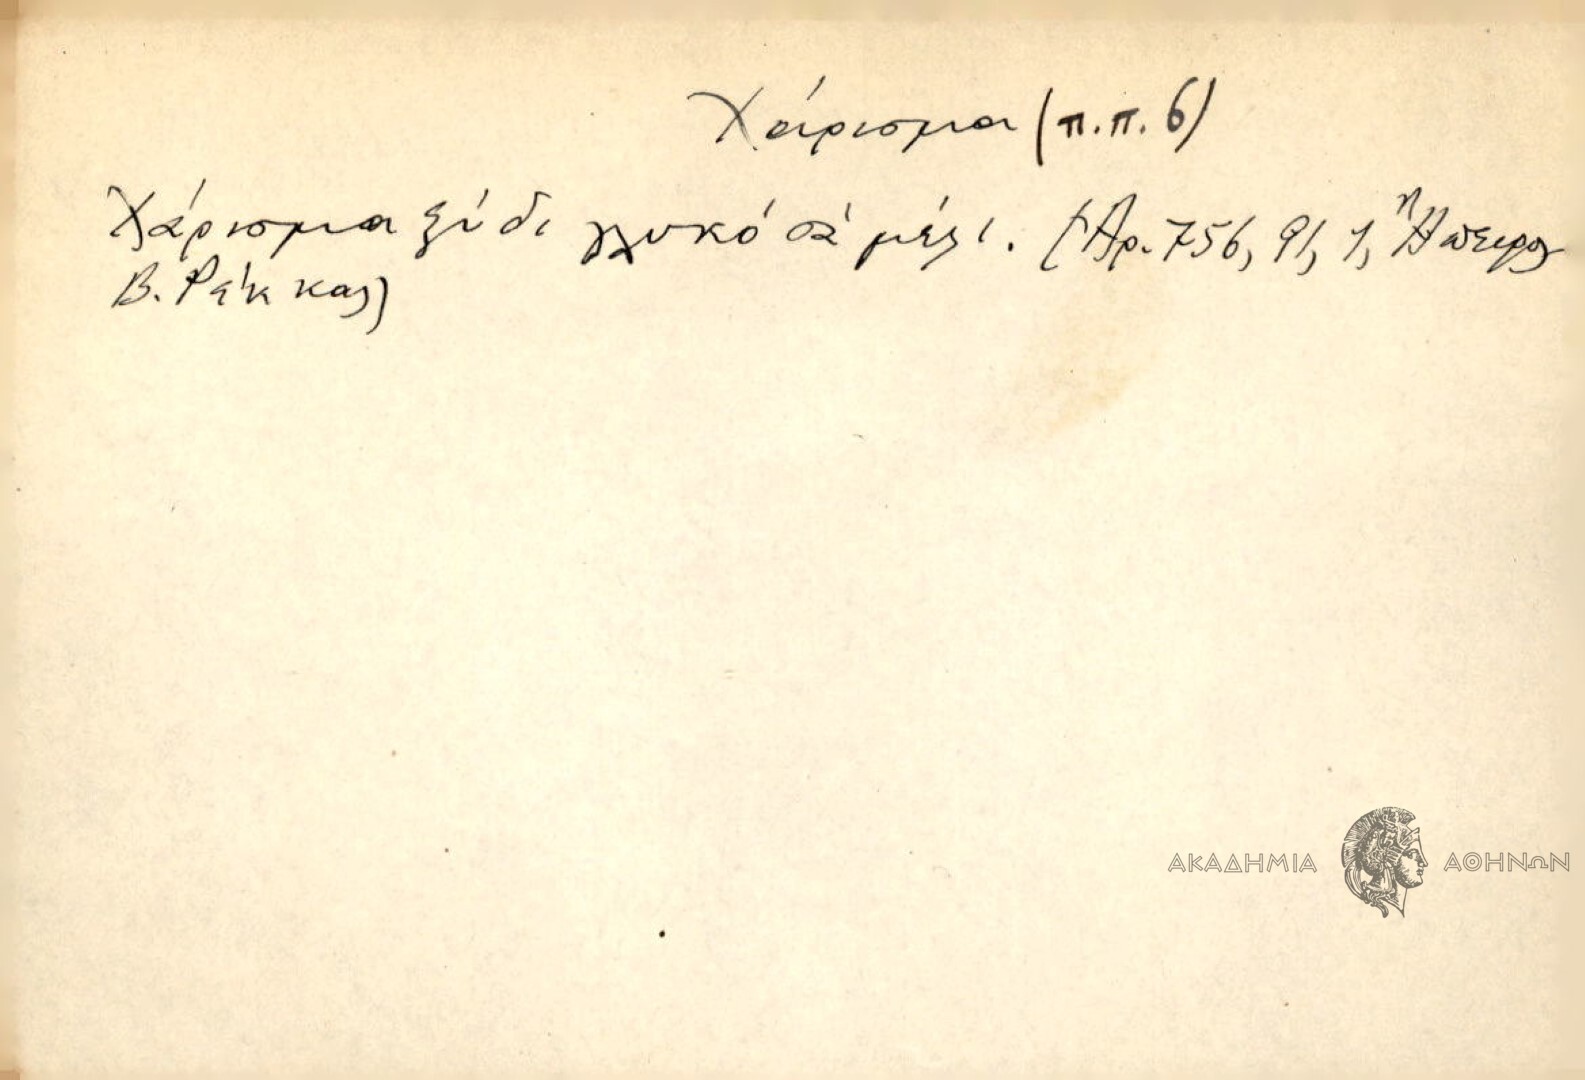 Χάρισμα (π.π. 6)
Χάρισμα ξύδι γλυκό σὰ μέλι. (Ἀρ. 756, 91, 1, Ἤπειρος
Β. Ράκκας)
ΑΚΑΔΗΜΙΑ ΑΘΗΝΩΝ